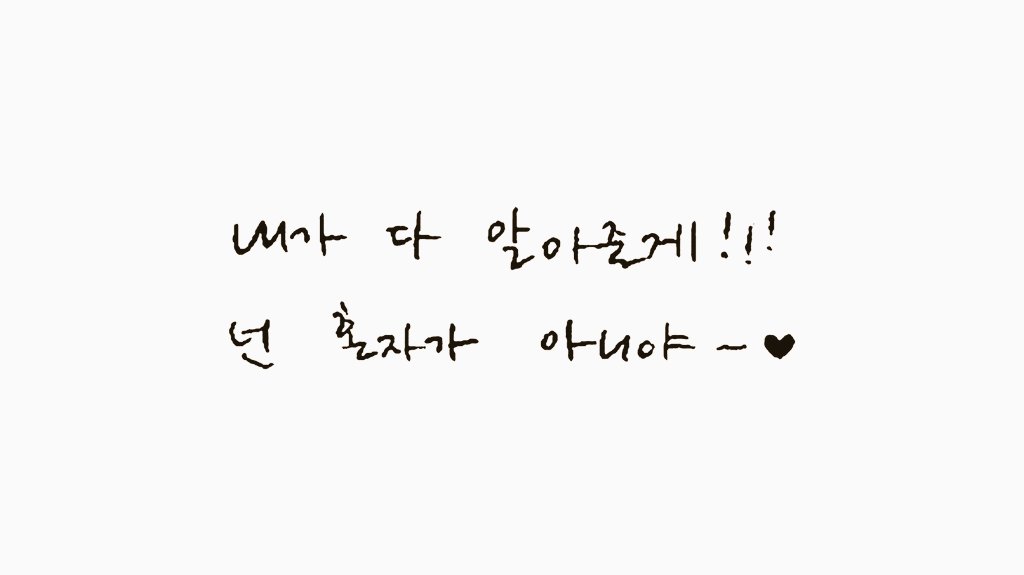 내가 다 알아줄게!!!
넌 혼자가 아니야~♥